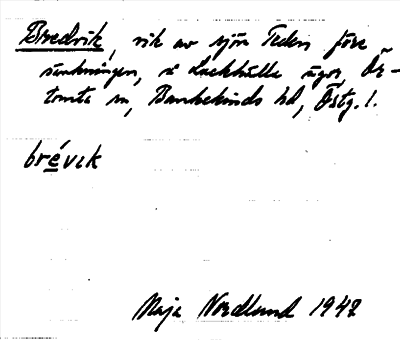 Bredvik, vik av sjön Teden före
sänkningen, i Lackhälla ägor, Ör-
tomta sn, Bankekinds hd, Östg. l.
brévik
Maja Nordlund 1942